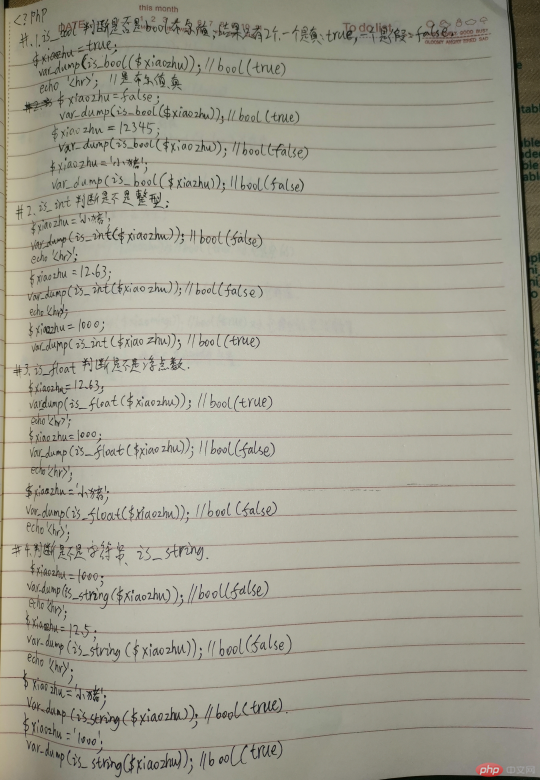 this month
DATE
To do list
GOOD BUSY
GLOOMY ANGRY TIRED SAD
<?php
#.1.is_bool判断是否是bool布尔值,结果只有2个一个是真true,一个是假=false。
$xiaozhu=true;
var_dump(is_bool($xiaozhu)); //bool(true)
echo '<hr>'; //是布尔值真
$xiaozhu=false;
var_dump(is_bool($xiaozhu)); //bool(true)
$xiaozhu=12345;
var_dump(is_bool($xiaozhu)); //bool(false)
$xiaozhu='小猪';
var_dump(is_bool($xiaozhu)) //bool(false)
#2.is_int判断是不是整型;
$xiaozhu='小猪';
var_dump(is_int($xiaozhu)); //bool(false)
echo'<hr>';
$xiaozhu=12.63;
var_dump(is_int($xiaozhu)); //bool(false)
echo'<hr>';
$xiaozhu=1000;
var_dump(is_int($xiaozhu)); //bool(true)
#3.is_float判断是不是浮点数.
$xiaozhu=12.63;
var_dump(is_float($xiaozhu)); //bool(true)
echo'<hr>';
$xiaozhu=1000;
var_dump(is_float($xiaozhu)); //bool(false)
echo'<hr>';
$xiaozhu='小猪';
var_dump(is_float($xiaozhu)); //bool(false)
echo'<hr>';
#4.判断是不是字符串、is_string.
$xiaozhu=1000;
var_dump(is_string($xiaozhu)); //bool(false)
echo'<hr>';
$xiaozhu=12.5;
var_dump(is_string($xiaozhu)); //bool(false)
echo'<hr>';
$xiaozhu='小猪';
var_dump(is_string($xiaozhu)); //bool(true)
$xiaozhu='1000';
var_dump(is_string($xiaozhu)); //bool(true)
php 中文网